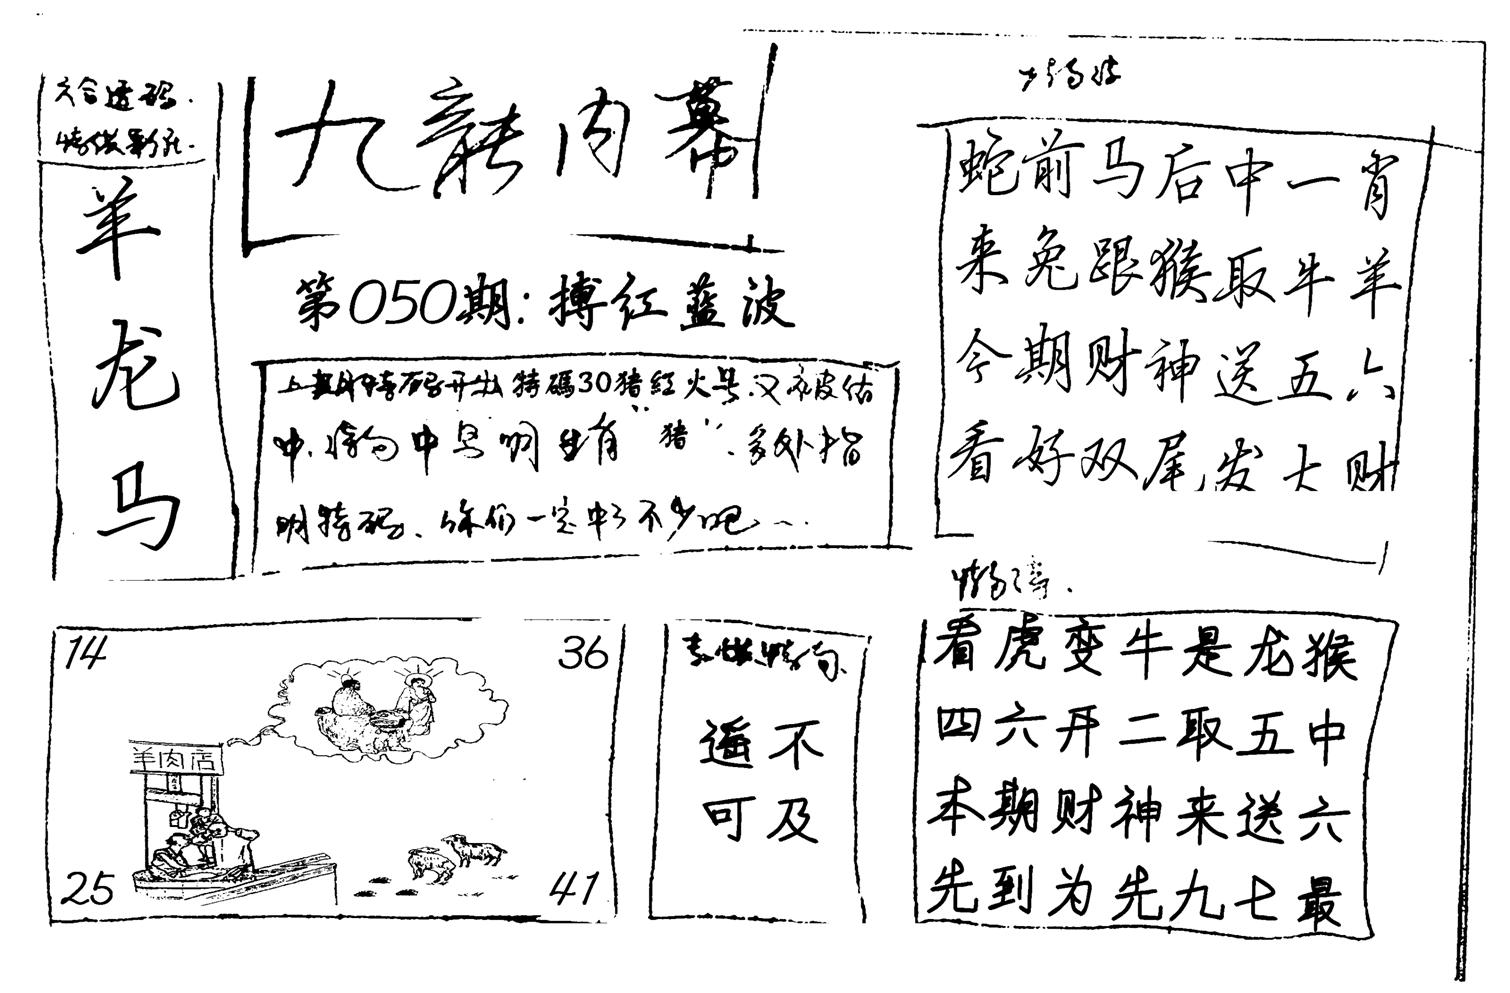 六合透码.
羊
龙
马
九龍内幕
第050期:搏红蓝波
上期特码开出特碼30猪红火号.又被估
中.特句中早明生肖"猪".多处指
明特码、你们一定中了不少吧
蛇前马后中一肖
来兔跟猴取牛羊
今期财神送五六
看好双尾发大财
看虎变牛是龙猴
四六开二取五中
本期财神来送六
先到为先九七最
遥不
可及
14
36
羊肉店
25
41